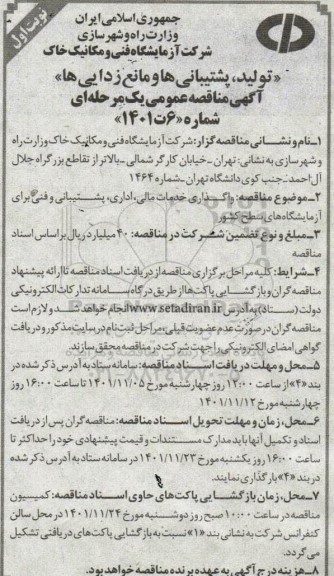 نوبت اول
جمهوری اسلامی ایران
وزارت راه و شهرسازی
شرکت آزمایشگاه فنی و مکانیک خاک
«تولید، پشتیبانی ها و مانع زدایی ها»
آگهی مناقصه عمومی یک مرحله ای
شماره «۶ت۱۴۰۱»
۱-نام و نشانی مناقصه گزار: شرکت آزمایشگاه فنی و مکانیک خاک وزارت راه
و شهرسازی به نشانی: تهران -خیابان کارگر شمالی -بالاتر از تقاطع بزرگراه جلال
آل احمد- جنب کوی دانشگاه تهران -شماره ۱۴۶۴
۲-موضوع مناقصه: واگذاری خدمات مالی، اداری، پشتیبانی و فنی برای
آزمایشگاه های سطح کشور
۳-مبلغ و نوع تضمین شرکت در مناقصه: ۴۰ میلیارد ریال بر اساس اسناد
مناقصه
۴-شرایط: کلیه مراحل برگزاری مناقصه از دریافت اسناد مناقصه تا ارائه پیشنهاد
مناقصه گران و بازگشایی پاکت ها از طریق درگاه سامانه تدارکات الکترونیکی
دولت (ستاد) به آدرس www.setadiran.ir انجام خواهد شد و لازم است
مناقصه گران در صورت عدم عضویت قبلی، مراحل ثبت نام در سایت مذکور و دریافت
گواهی امضای الکترونیکی را جهت شرکت در مناقصه محقق سازند.
۵-محل و مهلت دریافت اسناد مناقصه: سامانه ستاد به آدرس ذکر شده در
بند «۴» از ساعت ۱۲:۰۰ روز چهارشنبه مورخ ۱۴۰۱/۱۱/۰۵ تا ساعت ۱۶:۰۰ روز
چهارشنبه مورخ ۱۴۰۱/۱۱/۱۲
۶-محل، زمان و مهلت تحویل اسناد مناقصه: مناقصه گران پس از دریافت
اسناد و تکمیل آنها باید مدارک مستندات و قیمت پیشنهادی خود را حداکثر تا
ساعت ۱۶:۰۰ روز یکشنبه مورخ ۱۴۰۱/۱۱/۲۳ در سامانه ستاد به آدرس ذکر شده
در بند «۴» بارگذاری نمایند.
۷-محل، زمان بازگشایی پاکت های حاوی اسناد مناقصه: کمیسیون
مناقصه در ساعت ۱۰:۰۰ صبح روز دوشنبه مورخ ۱۴۰۱/۱۱/۲۴ در محل سالن
کنفرانس شرکت به نشانی بند «۱» نسبت به بازگشایی پاکت های دریافتی تشکیل
می گردد.
۸-هزینه درج آگهی به عهده برنده مناقصه خواهد بود.